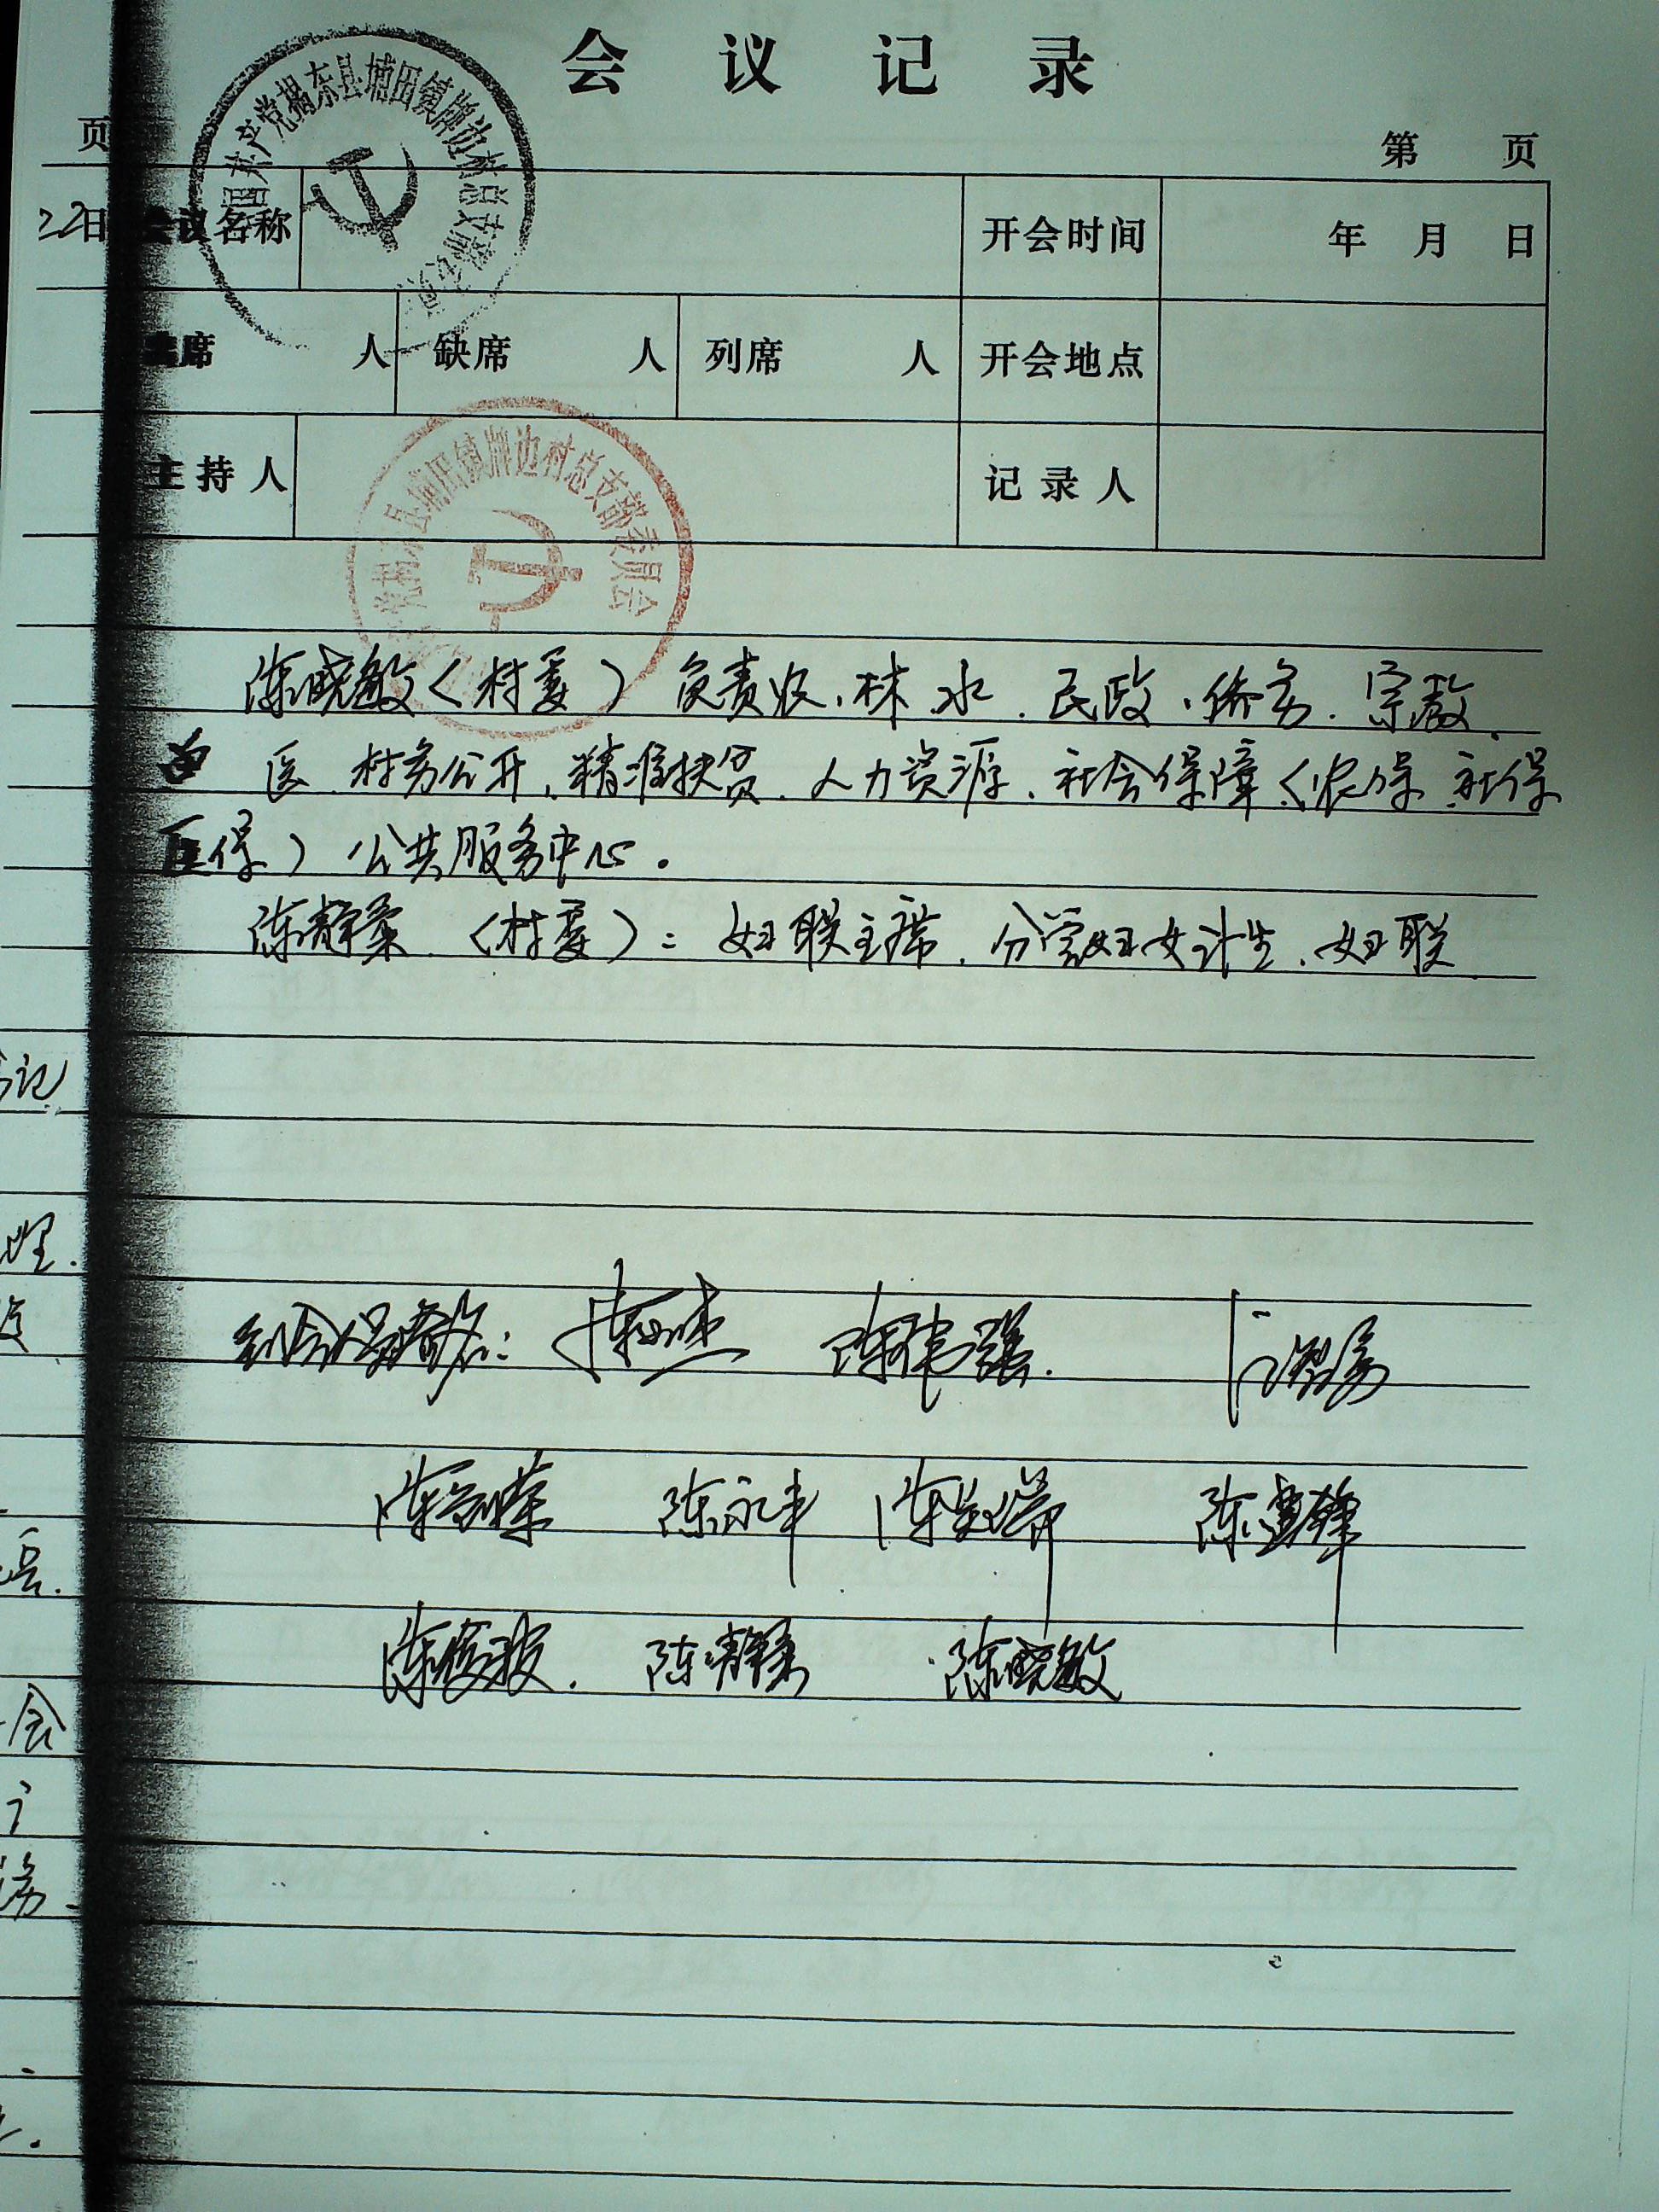 会议记录
页
第 页
22日
会议名称
开会时间
年 月 日
中国共产党揭东县埔田镇牌边村总支部委员会
出席 人
缺席 人
列席 人
开会地点
主持人
记录人
党揭东县埔田镇牌边村总支部委员会
陈晓敏（村委）负责农、林、水、民政、侨务、宗教、
医、村务公开、精准扶贫、人力资源、社会保障（农保、社保
医保）公共服务中心。
陈静柔（村委）：妇联主席、分管妇女计生、妇联
书记
理.
到会人员签名：陈伟强.
兵.
陈永丰
会
陈静柔 陈晓敏
务